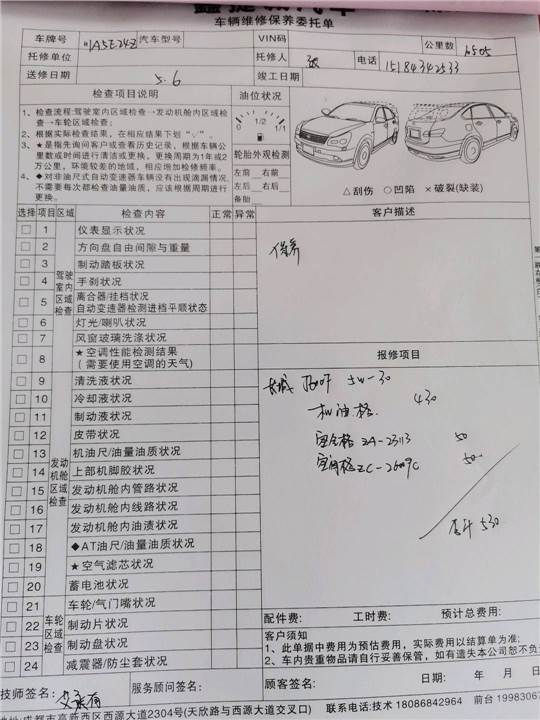 车辆维修保养委托单
车牌号 A5E24Z 汽车型号 VIN码 公里数
托修单位 托修人 张 电话 15184342533
送修日期 5.6 竣工日期
检查项目说明 油位状况
1、检查流程:驾驶室内区域检查→发动机舱内区域检查→车轮区域检查。
2、根据实际检查结果，在相应结果下划“√”。
3、★是指先询问客户或查看历史记录，根据车辆公里数或时间进行清洁或更换，更换周期为1年或2万公里，环境较差的地域，相应增加检修频率。
4、◆对非油尺式自动变速器车辆没有出现滴漏情况，不需要每次都检查油量油质，应该根据周期进行更换。
0 1/2 1/1
轮胎外观检测
左前 右前
左后 右后
备胎
△刮伤 ○凹陷 ×破裂(缺装)
选择 项目 区域 检查内容 正常 异常 客户描述
保养
驾驶室内区域检查
1 仪表显示状况
2 方向盘自由间隙与重量
3 制动踏板状况
4 手刹状况
5 离合器/挂档状况
自动变速器检测进档平顺状态
6 灯光/喇叭状况
7 风窗玻璃洗涤状况
8 ★空调性能检测结果
(需要使用空调的天气)
发动机舱区域检查
9 清洗液状况
10 冷却液状况
11 制动液状况
12 皮带状况
13 机油尺/油量油质状况
14 上部机脚胶状况
15 发动机舱内管路状况
16 发动机舱内线路状况
17 发动机舱内油渍状况
18 ◆AT油尺/油量油质状况
19 ★空气滤芯状况
20 蓄电池状况
车轮区域检查
21 车轮/气门嘴状况
22 制动片状况
23 制动盘状况
24 减震器/防尘套状况
报修项目
长城 5W-30
机油.格 430
空气格 ZA-23113 50
空调格 ZC-2609C 50
合计 530
配件费: 工时费: 预计总费用:
客户须知
1、此单据中费用为预估费用，实际费用以结算单为准;
2、车内贵重物品请自行妥善保管，如有遗失本公司恕不负
技师签名: 服务顾问签名: 顾客签名: 日期: 年 月 日
地址:成都市高新西区西源大道2304号(天欣路与西源大道交叉口) 联系电话:技术 18086842964 前台 19983067